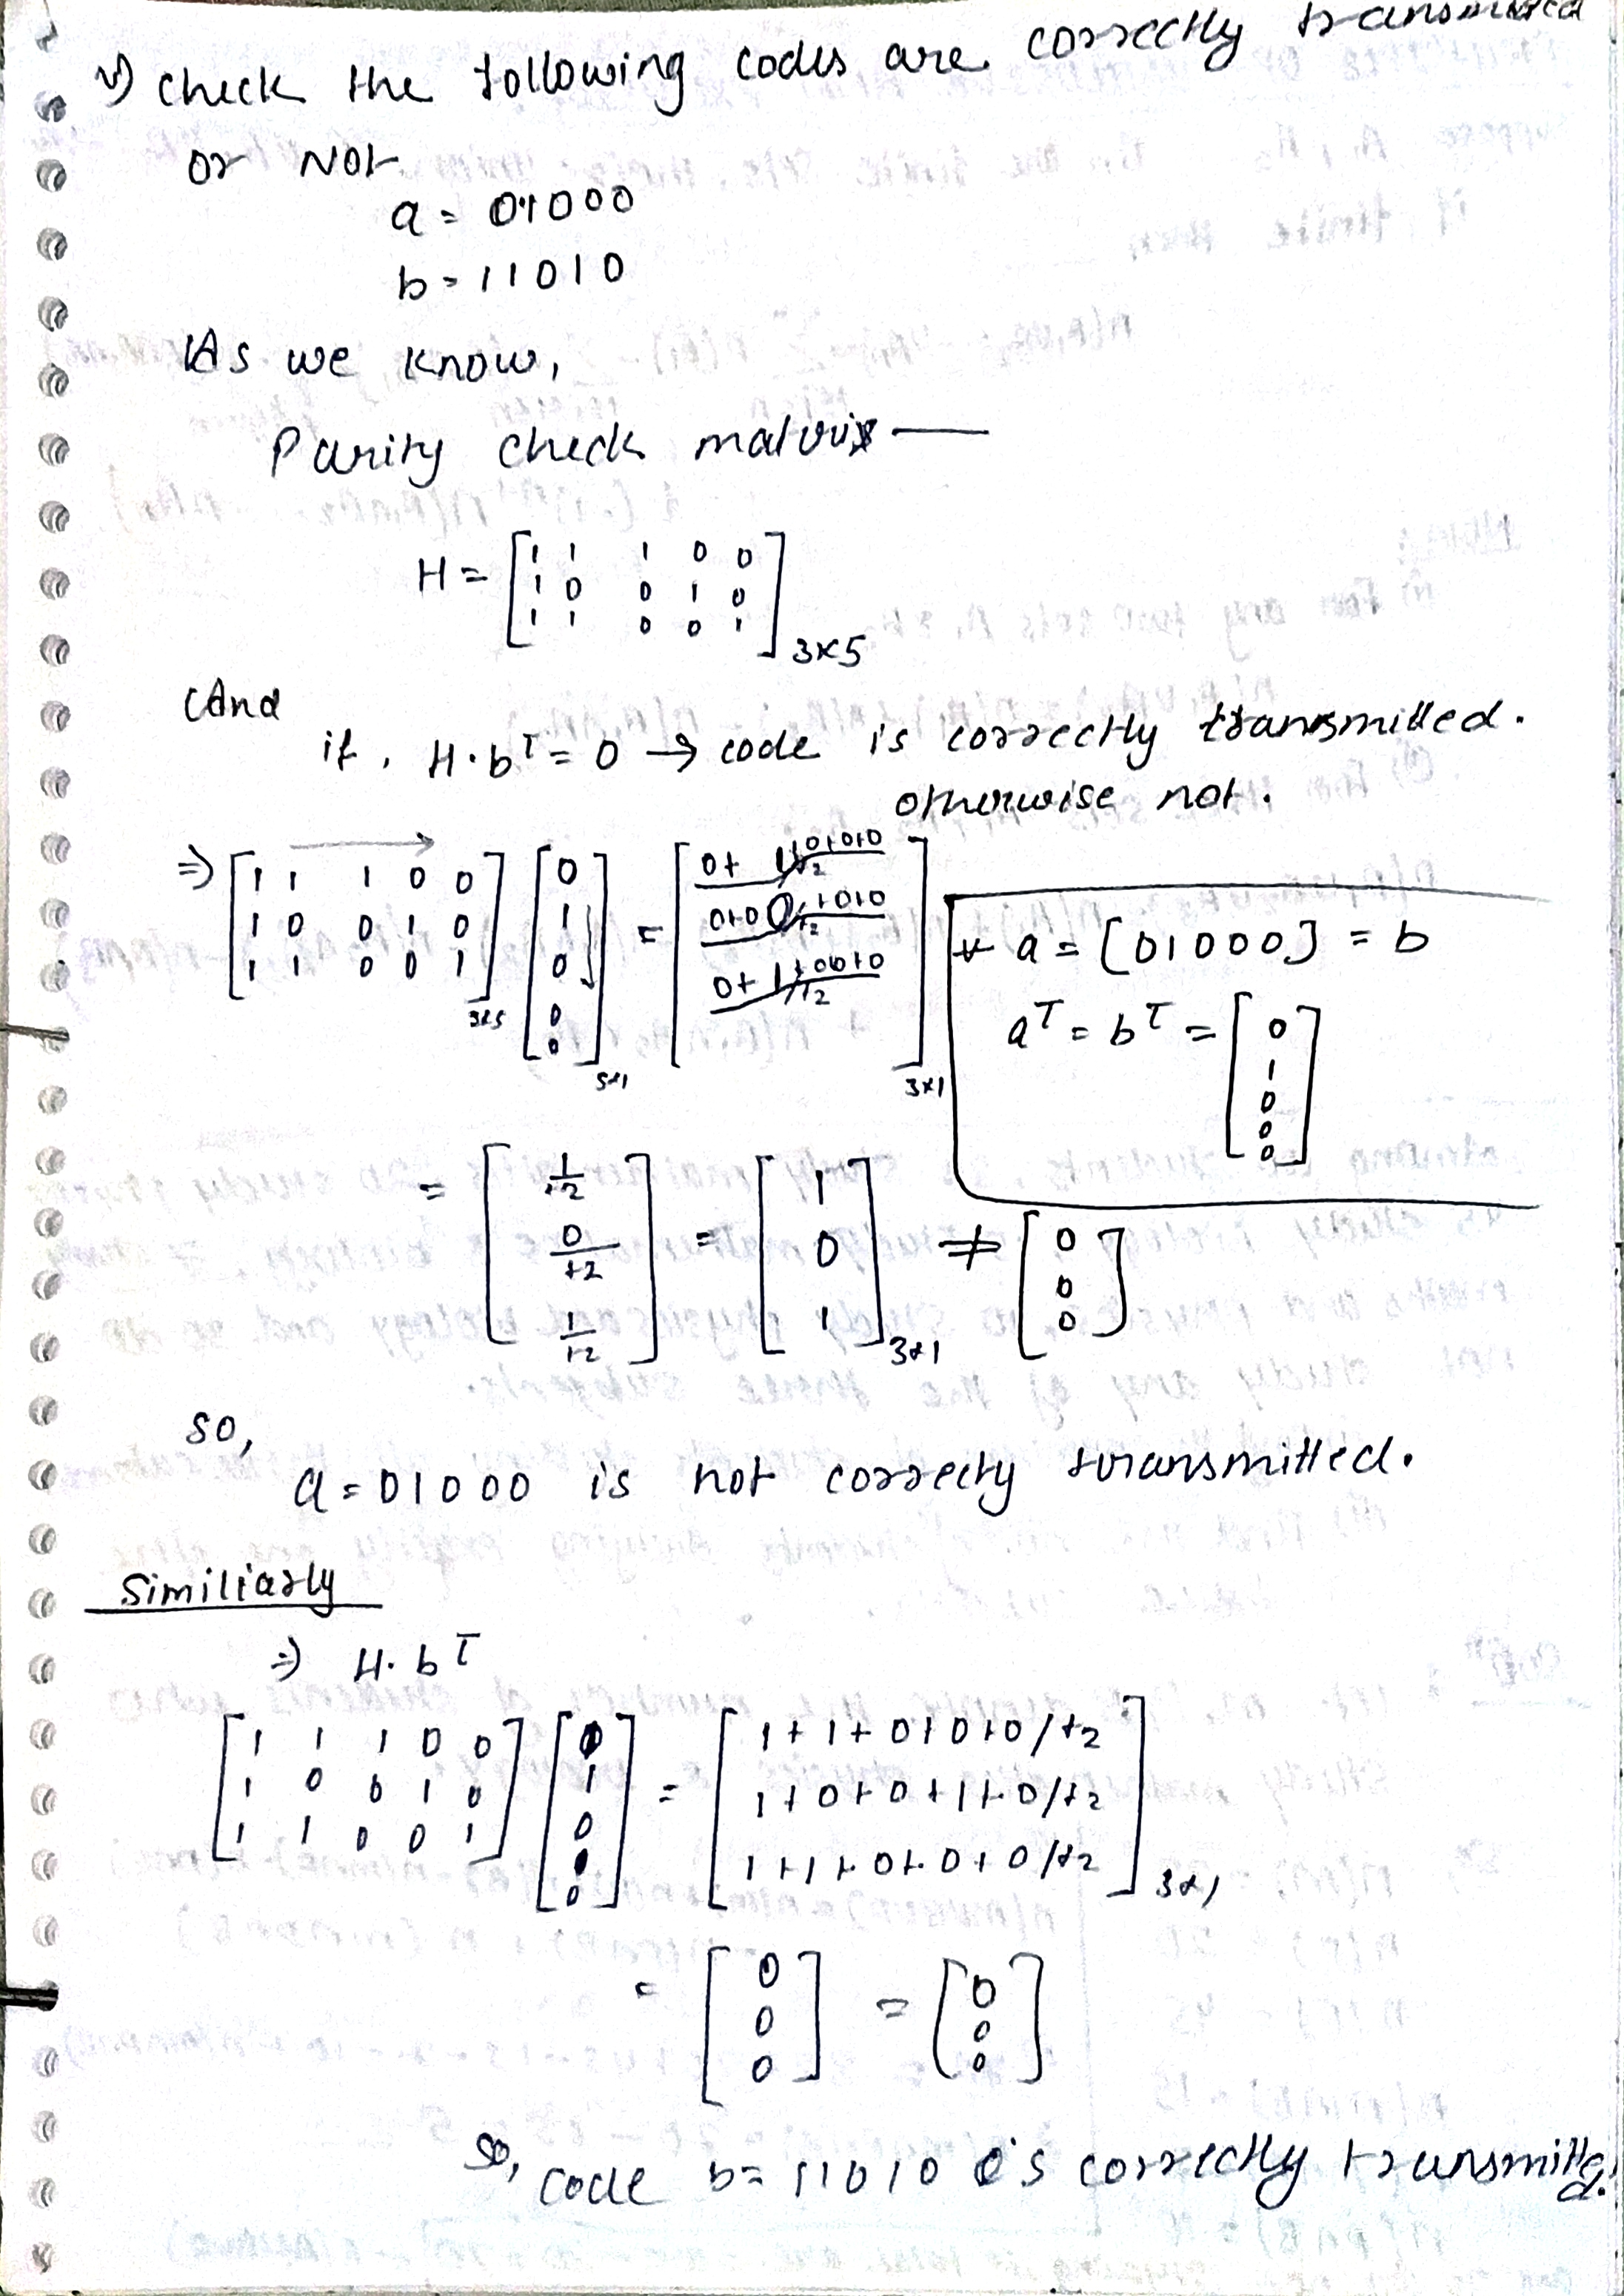 v) check the following codes are correctly transmitted
or Not
a = 01000
b = 11010
As we know,
Parity check matrix —
H = [1 1 1 0 0
1 0 0 1 0
1 1 0 0 1] 3x5
And
if, H·b^T = 0 → code is correctly transmitted.
otherwise not.
⇒ [1 1 1 0 0
1 0 0 1 0
1 1 0 0 1] 3x5 [0
1
0
0
0] 5x1 = [0+1+0+0+0/+2
0+0+0+0+0/+2
0+1+0+0+0/+2] 3x1
* a = [01000] = b
a^T = b^T = [0
1
0
0
0]
= [1/+2
0/+2
1/+2] = [1
0
1] 3x1 ≠ [0
0
0]
so,
a = 01000 is not correctly transmitted.
Similiarly
⇒ H·b^T
[1 1 1 0 0
1 0 0 1 0
1 1 0 0 1] [1
1
0
1
0] = [1+1+0+0+0/+2
1+0+0+1+0/+2
1+1+0+0+0/+2] 3x1
= [0
0
0] = [0
0
0]
So, code b = 11010 is correctly transmitted.